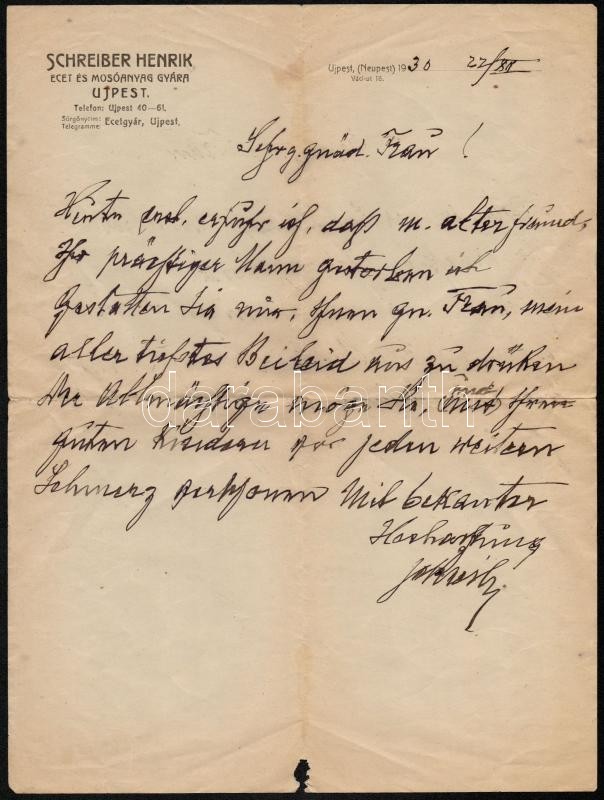 SCHREIBER HENRIK
ECET ÉS MOSÓANYAG GYÁRA
UJPEST.
Telefon: Ujpest 40—61.
Sürgönycim: Telegramme: Ecetgyár, Ujpest.
Ujpest, (Neupest) 1930 22/XII
Váci-ut 16.
Sehr g. gnäd. Frau!
erfuhr ich, daß m. alter freund,
Ihr prächtiger Mann gestorben ist
Gestatten Sie mir, Ihnen gn. Frau, mein
aller tiefstes Beileid aus zu drüken
Der Allmächtige möge Sie, und Ihre
guten Kinder vor jeden weitern
Schmerz verschonen Mit bekanter
Hochachtung
darabanth